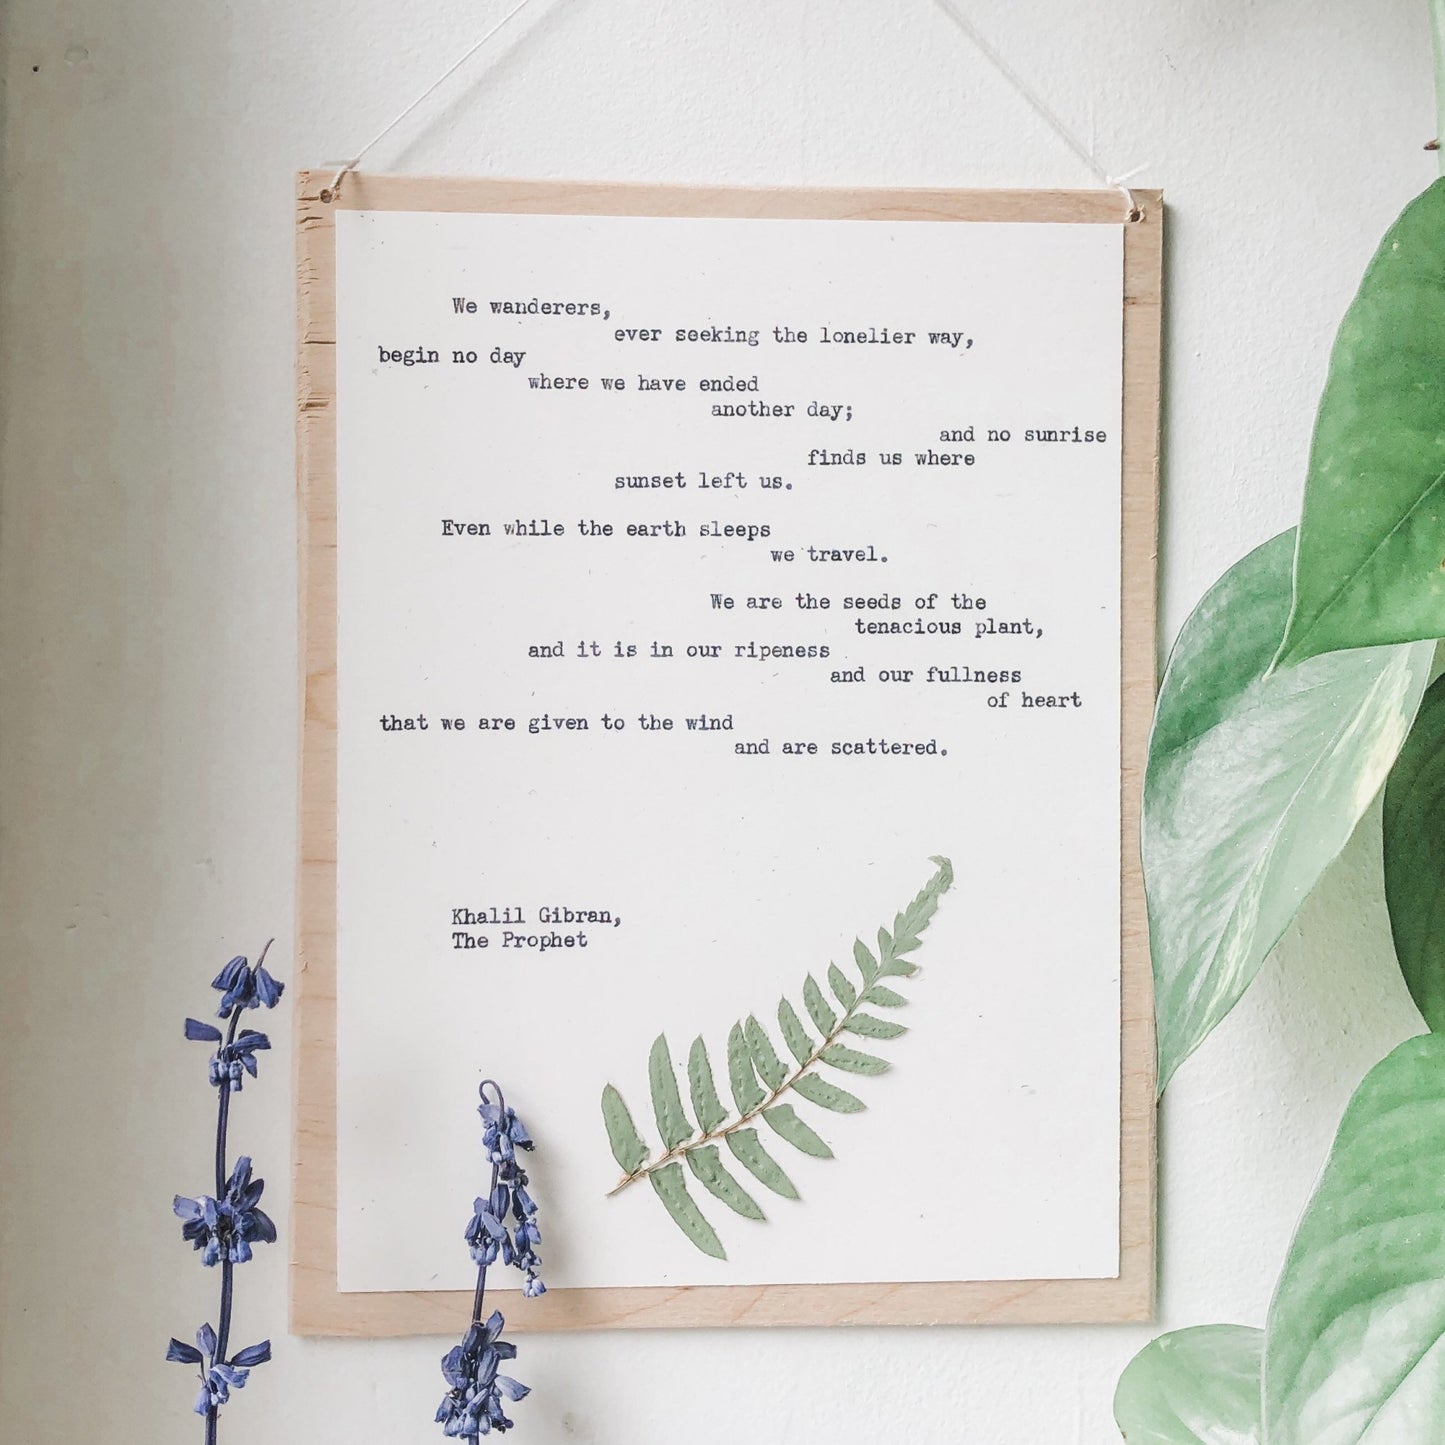 We wanderers,
ever seeking the lonelier way,
begin no day
where we have ended
another day;
and no sunrise
finds us where
sunset left us.
Even while the earth sleeps
we travel.
We are the seeds of the
tenacious plant,
and it is in our ripeness
and our fullness
of heart
that we are given to the wind
and are scattered.
Khalil Gibran,
The Prophet